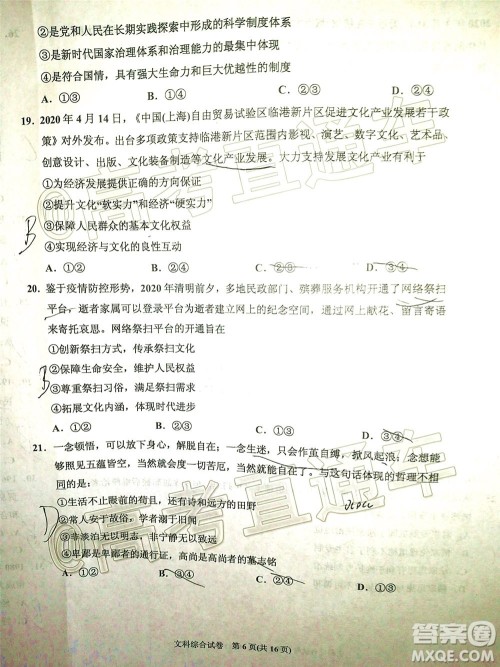 ②是党和人民在长期实践探索中形成的科学制度体系
③是新时代国家治理体系和治理能力的最集中体现
④是符合国情，具有强大生命力和巨大优越性的制度
A．①③ B．①④ C．②③ D．②④
19．2020年4月14日，《中国(上海)自由贸易试验区临港新片区促进文化产业发展若干政
策》对外发布。出台多项政策支持临港新片区范围内影视、演艺、数字文化、艺术品、
创意设计、出版、文化装备制造等文化产业发展。大力支持文化产业发展有利于
①为经济发展提供正确的方向保证
②提升文化“软实力”和经济“硬实力”
③保障人民群众的基本文化权益
B
④实现经济与文化的良性互动
A．①② B．②④ C．②③ D．③④
20．鉴于疫情防控形势，2020年清明前夕，多地民政部门、殡葬服务机构开通了网络祭扫
平台，逝者家属可以登录平台为逝者建立网上的纪念空间，通过网上献花、留言寄语
来寄托哀思。网络祭扫平台的开通旨在
①创新祭扫方式，传承祭扫文化
②保障生命安全，维护人民权益
B
③尊重祭扫习俗，满足祭扫需求
④拓展文化内涵，体现文化自信
A．①② B．②③ C．①④ D．③④
21．一念顿悟，可以放下身心，解脱自在；一念生迷，只会作茧自缚，掀风起浪；念念如果
能够照见五蕴皆空，当然就能度一切苦厄，当然就能解脱自在。与这句话体现的哲理不相
同的是
①生活不止眼前的苟且，还有诗和远方的田野
D
②常人安于故俗，学者溺于旧闻
③非淡泊无以明志，非宁静无以致远
④卑鄙是卑鄙者的通行证，高尚是高尚者的墓志铭
A．①② B．③④ C．①③ D．②④
文科综合试卷 第6页(共16页)
@高考直通车
@高考直通车
@高考直通车
答案圈
MXQE.COM